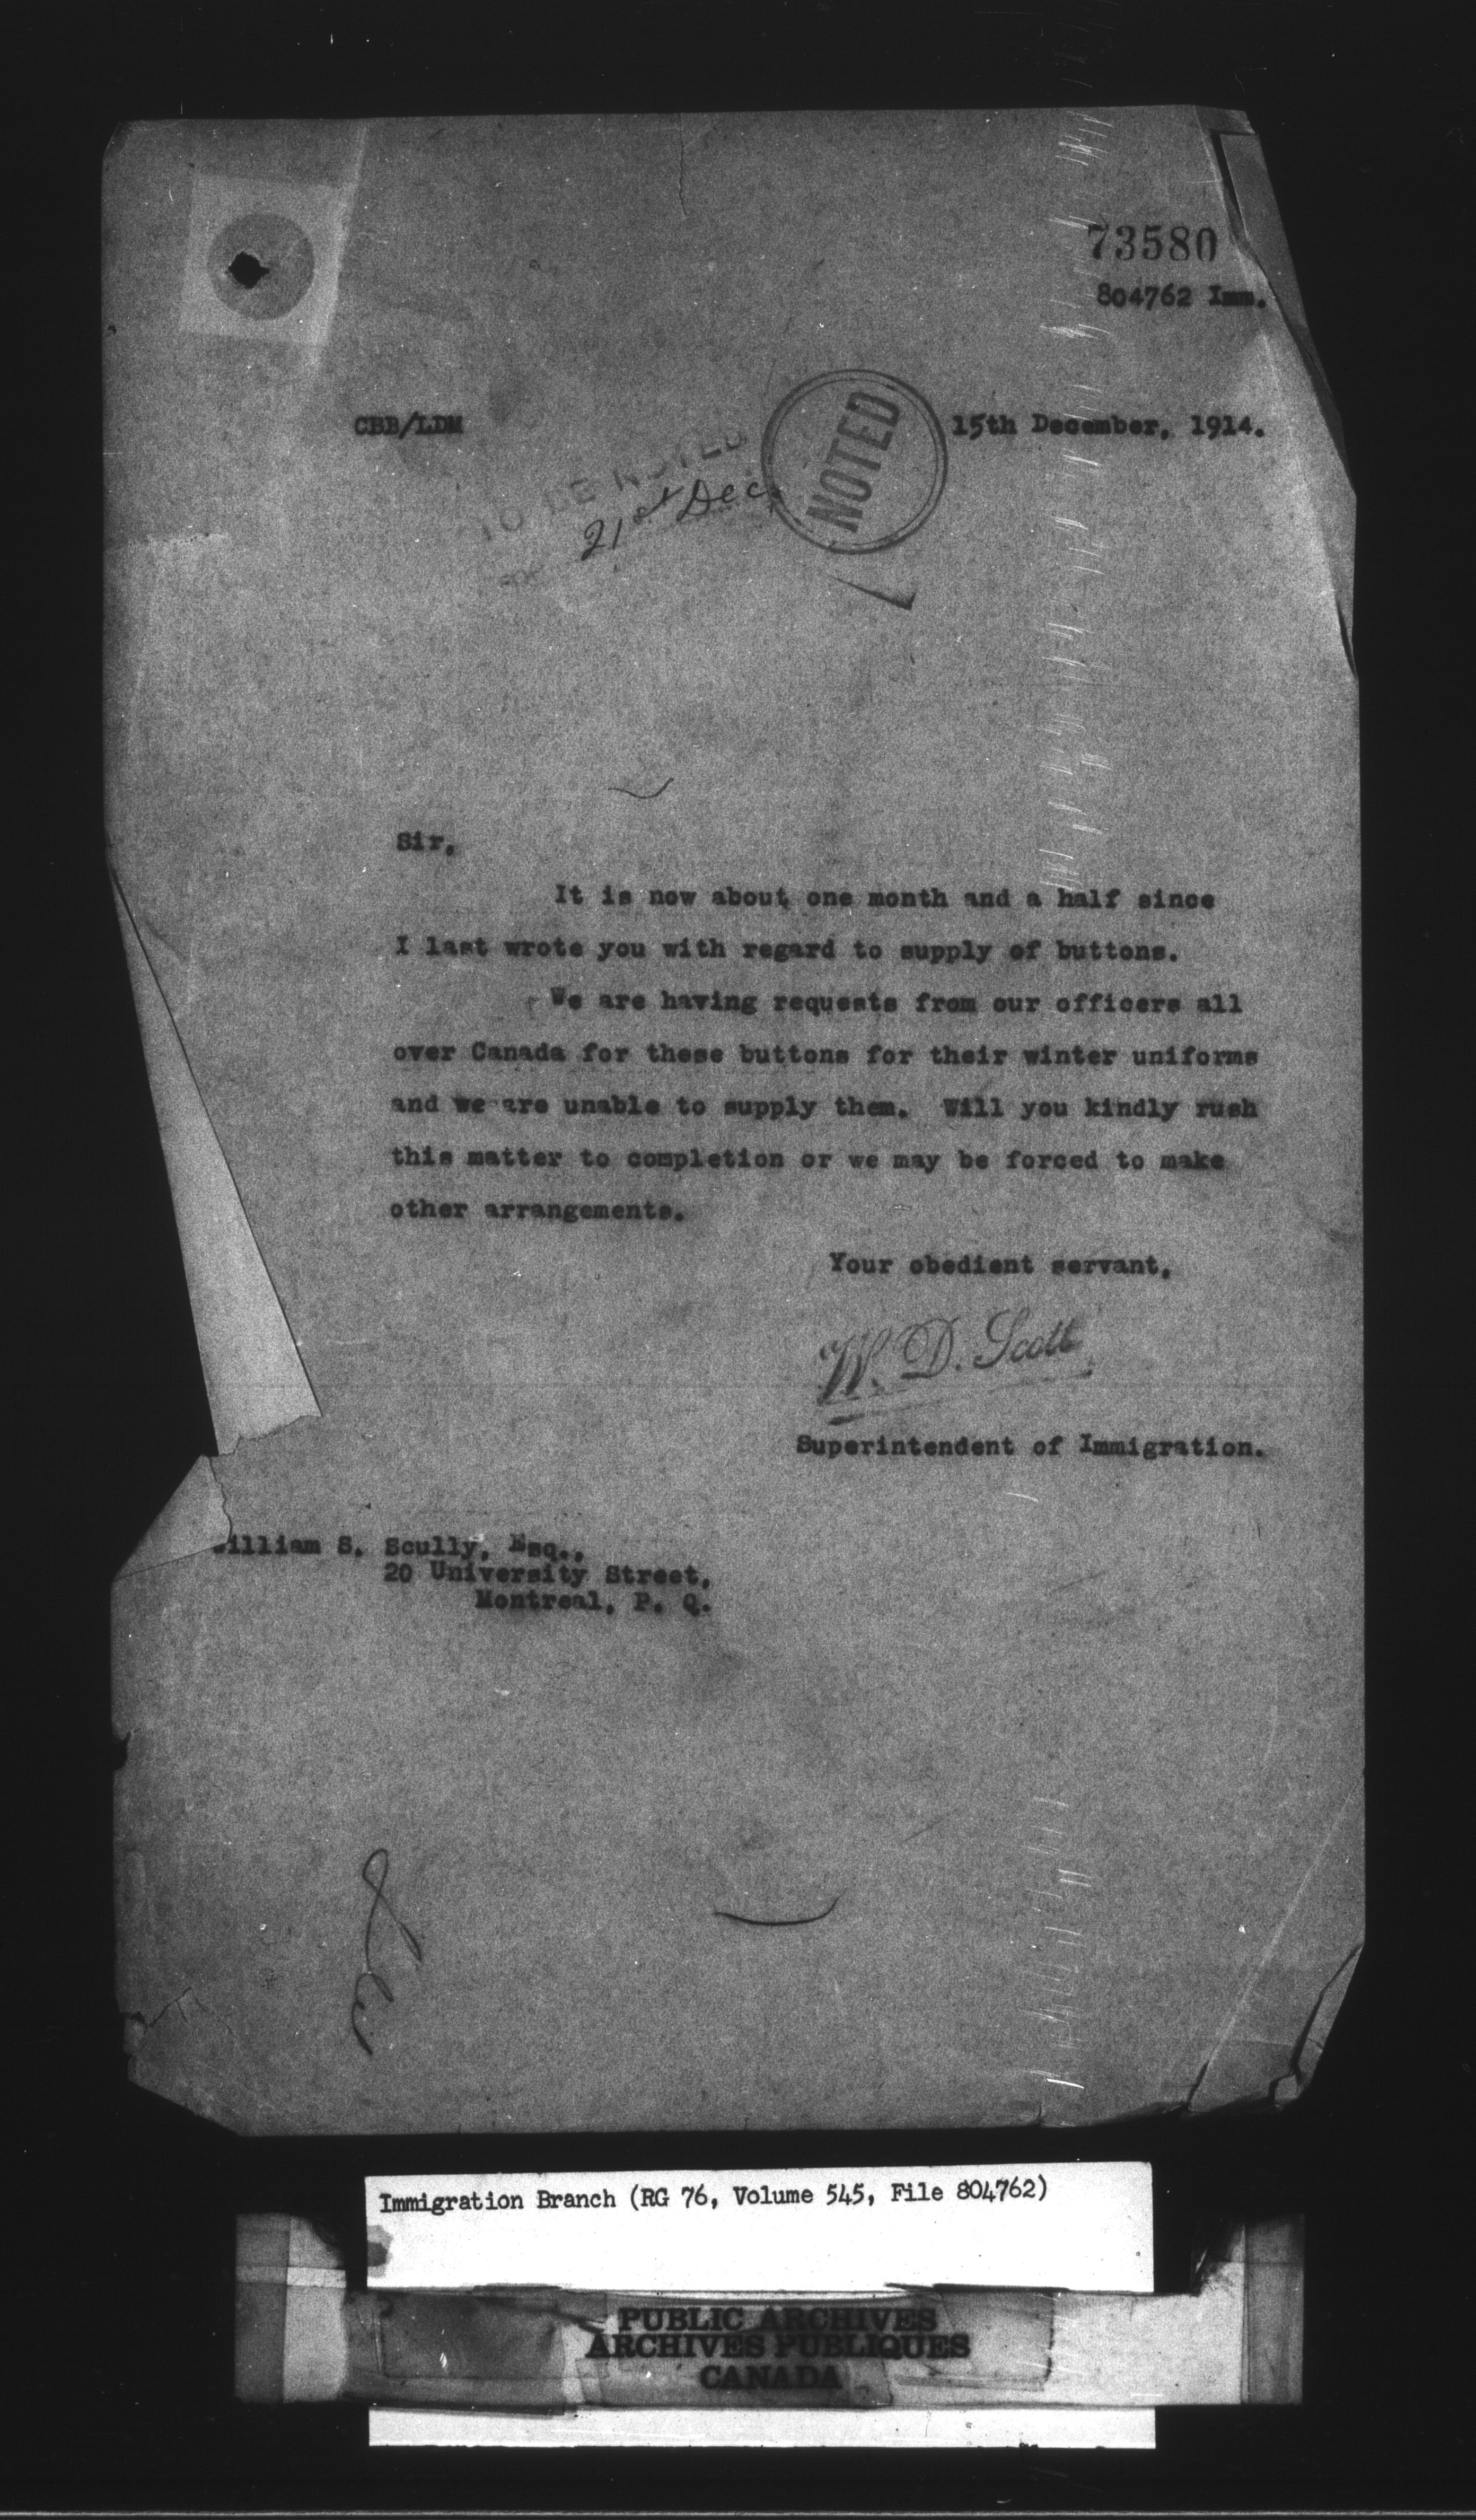 73580
804762 Imm.
CBB/LDM
15th December, 1914.
NOTED
TO BE NOTED
FOR 21st Dec.
Sir,
It is now about one month and a half since
I last wrote you with regard to supply of buttons.
We are having requests from our officers all
over Canada for these buttons for their winter uniforms
and we are unable to supply them. Will you kindly rush
this matter to completion or we may be forced to make
other arrangements.
Your obedient servant,
W. D. Scott
Superintendent of Immigration.
illiam S. Scully, Esq.,
20 University Street,
Montreal, P. Q.
Immigration Branch (RG 76, Volume 545, File 804762)
PUBLIC ARCHIVES
ARCHIVES PUBLIQUES
CANADA